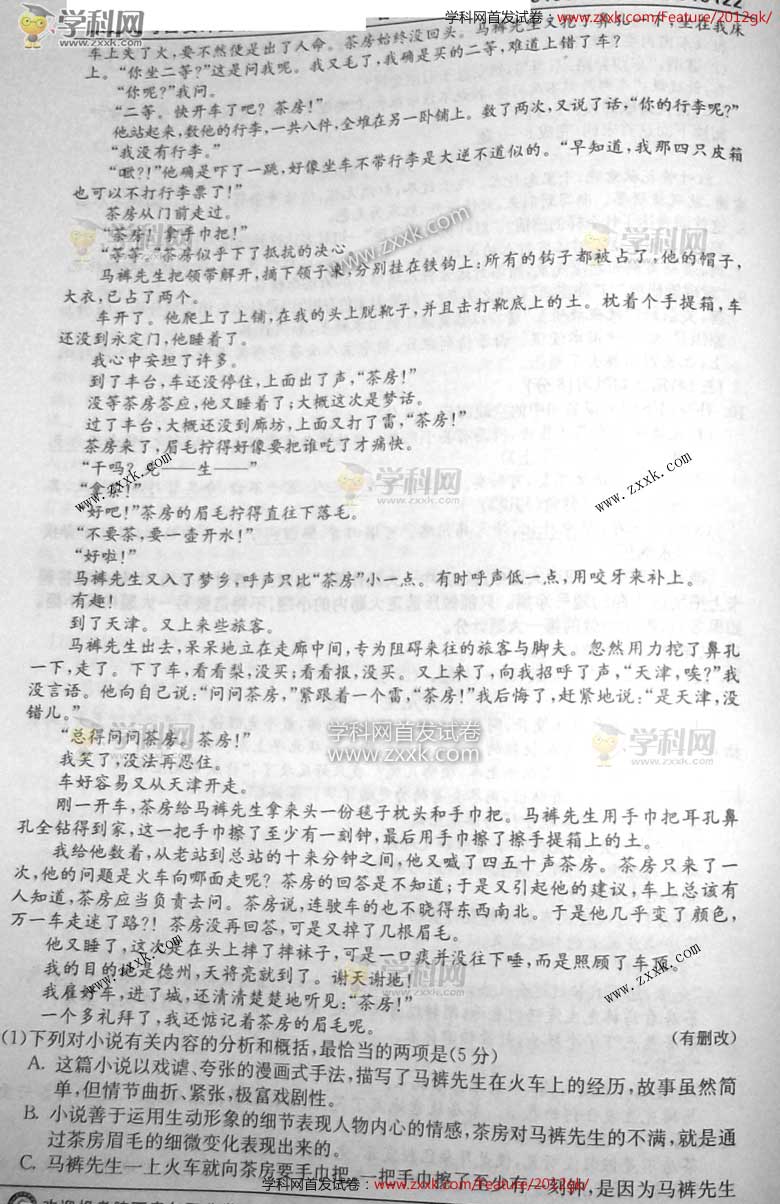 学科网首发试卷：www.zxxk.com/Feature/2012gk/
车上失了火，要不然便是出了人命。茶房始终没回头。马裤先生又挖
坐在我床
上。“你坐二等？”这是问我呢。我又毛了，我确是买的二等，难道上错了车？
“你呢？”我问。
“二等。快开车了吧？茶房！”
他站起来，数他的行李，一共八件，全堆在另一卧铺上。数了两次，又说了话，“你的行李呢？”
“我没有行李。”
“呕？！”他确是吓了一跳，好像坐车不带行李是大逆不道似的。“早知道，我那四只皮箱
也可以不打行李票了！”
茶房从门前走过。
“茶房！拿手巾把！”
“等等。”茶房似乎下了抵抗的决心。
马裤先生把领带解开，摘下领子来，分别挂在铁钩上；所有的钩子都被占了，他的帽子，
大衣，已占了两个。
车开了。他爬上了上铺，在我的头上脱靴子，并且击打靴底上的土。枕着个手提箱，车
还没到永定门，他睡着了。
我心中安坦了许多。
到了丰台，车还没停住，上面出了声，“茶房！”
没等茶房答应，他又睡着了；大概这次是梦话。
过了丰台，大概还没到廊坊，上面又打了雷，“茶房！”
茶房来了，眉毛拧得好像要把谁吃了才痛快。
“干吗？先——生——”
“拿茶！”
“好吧！”茶房的眉毛拧得直往下落毛。
“不要茶，要一壶开水！”
“好啦！”
马裤先生又入了梦乡，呼声只比“茶房”小一点。有时呼声低一点，用咬牙来补上。
有趣！
到了天津。又上来些旅客。
马裤先生出去，呆呆地立在走廊中间，专为阻碍来往的旅客与脚夫。忽然用力挖了鼻孔
一下，走了。下了车，看看梨，没买；看看报，没买。又上来了，向我招呼了声，“天津，唉？”我
没言语。他向自己说：“问问茶房，”紧跟着一个雷，“茶房！”我后悔了，赶紧地说：“是天津，没
错儿。”
“总得问问茶房。茶房！”
我笑了，没法再忍住。
车好容易又从天津开走。
刚一开车，茶房给马裤先生拿来头一份毯子枕头和手巾把。马裤先生用手巾把耳孔鼻
孔全钻得到家，这一把手巾擦了至少有一刻钟，最后用手巾擦了擦手提箱上的土。
我给他数着，从老站到总站的十来分钟之间，他又喊了四五十声茶房。茶房只来了一
次，他的问题是火车向哪面走呢？茶房的回答是不知道；于是又引起他的建议，车上总该有
人知道，茶房应当负责去问。茶房说，连驶车的也不晓得东西南北。于是他几乎变了颜色，
万一车走迷了路？！茶房没再回答，可是又掉了几根眉毛。
他又睡了，这次是在头上摔了摔袜子，可是一口痰并没往下唾，而是照顾了车顶。
我的目的地是德州，天将亮就到了。谢天谢地！
我雇好车，进了城，还清清楚楚地听见：“茶房！”
一个多礼拜了，我还惦记着茶房的眉毛呢。
（有删改）
(1)下列对小说有关内容的分析和概括，最恰当的两项是(5分)
A. 这篇小说以戏谑、夸张的漫画式手法，描写了马裤先生在火车上的经历，故事虽然简
单，但情节曲折、紧张，极富戏剧性。
B. 小说善于运用生动形象的细节表现人物内心的情感，茶房对马裤先生的不满，就是通
过茶房眉毛的细微变化表现出来的。
C. 马裤先生一上火车就向茶房要手巾把，一把手巾擦了至少有一刻钟，是因为马裤先生
学科网首发试卷：www.zxxk.com/Feature/2012gk/